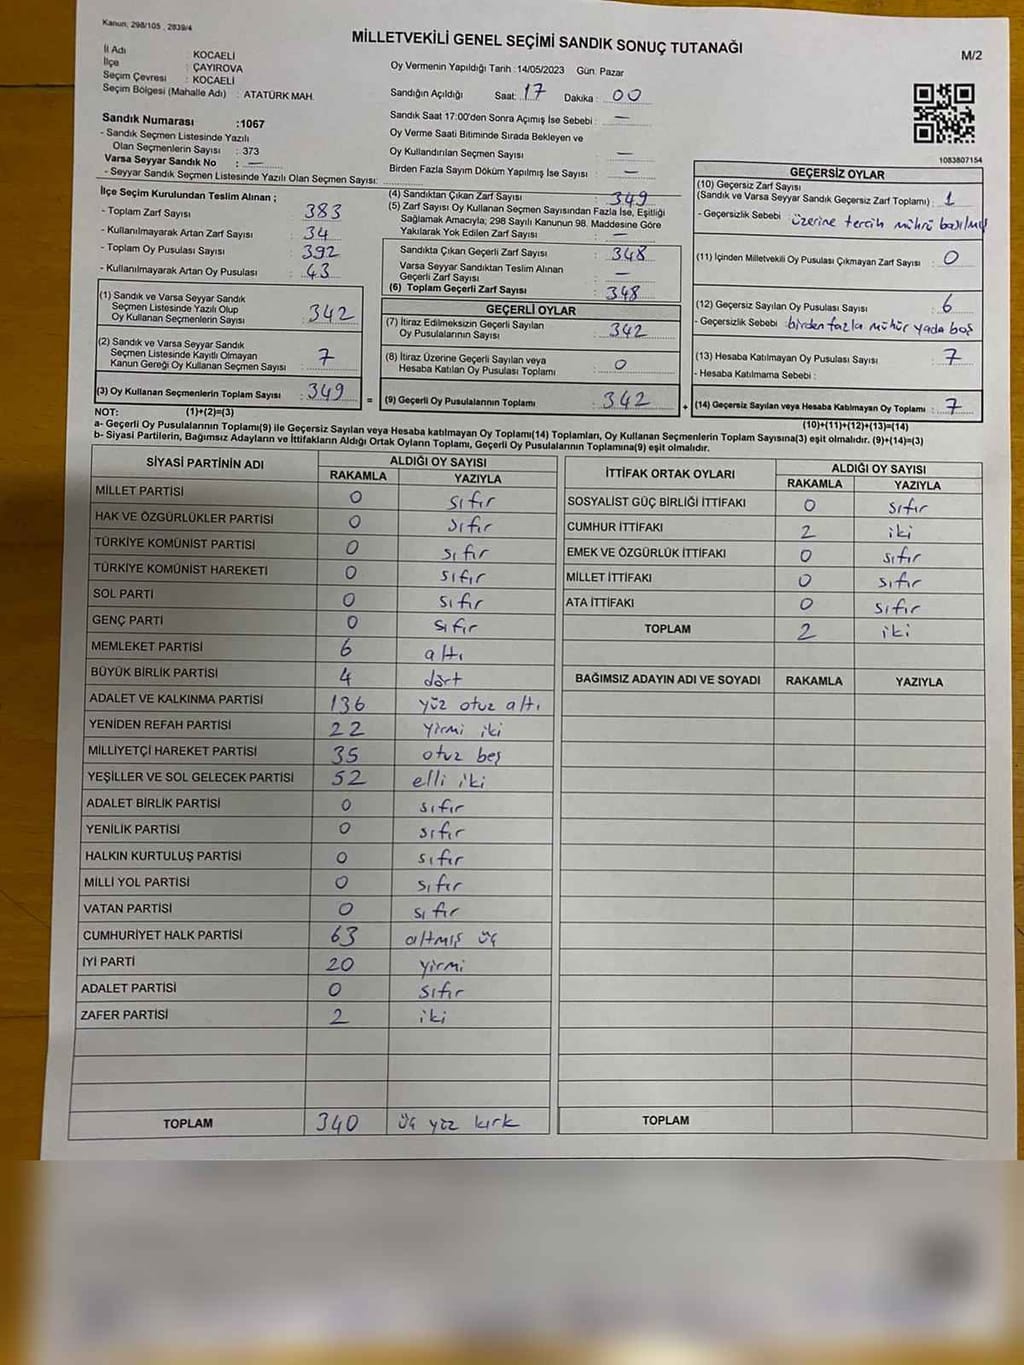 Kanun, 298/105 , 2839/4
MİLLETVEKİLİ GENEL SEÇİMİ SANDIK SONUÇ TUTANAĞI
M/2
İl Adı : KOCAELİ
İlçe : ÇAYIROVA
Seçim Çevresi : KOCAELİ
Seçim Bölgesi (Mahalle Adı) : ATATÜRK MAH.
Sandık Numarası :1067
- Sandık Seçmen Listesinde Yazılı
Olan Seçmenlerin Sayısı : 373
Varsa Seyyar Sandık No : —
- Seyyar Sandık Seçmen Listesinde Yazılı Olan Seçmen Sayısı:
Oy Vermenin Yapıldığı Tarih :14/05/2023 Gün: Pazar
Sandığın Açıldığı Saat: 17 Dakika : 00
Sandık Saat 17:00'den Sonra Açımış İse Sebebi : —
Oy Verme Saati Bitiminde Sırada Bekleyen ve
Oy Kullandırılan Seçmen Sayısı : —
Birden Fazla Sayım Döküm Yapılmış İse Sayısı : —
1083807154
İlçe Seçim Kurulundan Teslim Alınan ;
- Toplam Zarf Sayısı : 383
- Kullanılmayarak Artan Zarf Sayısı : 34
- Toplam Oy Pusulası Sayısı : 392
- Kullanılmayarak Artan Oy Pusulası : 43
(1) Sandık ve Varsa Seyyar Sandık
Seçmen Listesinde Yazılı Olup
Oy Kullanan Seçmenlerin Sayısı : 342
(2) Sandık ve Varsa Seyyar Sandık
Seçmen Listesinde Kayıtlı Olmayan
Kanun Gereği Oy Kullanan Seçmen Sayısı : 7
(3) Oy Kullanan Seçmenlerin Toplam Sayısı : 349
(4) Sandıktan Çıkan Zarf Sayısı : 349
(5) Zarf Sayısı Oy Kullanan Seçmen Sayısından Fazla İse, Eşitliği
Sağlamak Amacıyla; 298 Sayılı Kanunun 98. Maddesine Göre
Yakılarak Yok Edilen Zarf Sayısı : —
Sandıkta Çıkan Geçerli Zarf Sayısı : 348
Varsa Seyyar Sandıktan Teslim Alınan
Geçerli Zarf Sayısı : —
(6) Toplam Geçerli Zarf Sayısı : 348
GEÇERLİ OYLAR
(7) İtiraz Edilmeksizin Geçerli Sayılan
Oy Pusulalarının Sayısı : 342
(8) İtiraz Üzerine Geçerli Sayılan veya
Hesaba Katılan Oy Pusulası Toplamı : 0
= (9) Geçerli Oy Pusulalarının Toplamı : 342
GEÇERSİZ OYLAR
(10) Geçersiz Zarf Sayısı
(Sandık ve Varsa Seyyar Sandık Geçersiz Zarf Toplamı) : 1
- Geçersizlik Sebebi : üzerine tercih mührü basılmış
(11) İçinden Milletvekili Oy Pusulası Çıkmayan Zarf Sayısı : 0
(12) Geçersiz Sayılan Oy Pusulası Sayısı : 6
- Geçersizlik Sebebi : birden fazla mühür yada boş
(13) Hesaba Katılmayan Oy Pusulası Sayısı : 7
- Hesaba Katılmama Sebebi :
+ (14) Geçersiz Sayılan veya Hesaba Katılmayan Oy Toplamı : 7
NOT: (1)+(2)=(3)
(10)+(11)+(12)+(13)=(14)
a- Geçerli Oy Pusulalarının Toplamı(9) ile Geçersiz Sayılan veya Hesaba katılmayan Oy Toplamı(14) Toplamları, Oy Kullanan Seçmenlerin Toplam Sayısına(3) eşit olmalıdır. (9)+(14)=(3)
b- Siyasi Partilerin, Bağımsız Adayların ve İttifakların Aldığı Ortak Oyların Toplamı, Geçerli Oy Pusulalarının Toplamına(9) eşit olmalıdır.
SİYASİ PARTİNİN ADI ALDIĞI OY SAYISI
RAKAMLA YAZIYLA
MİLLET PARTİSİ 0 sıfır
HAK VE ÖZGÜRLÜKLER PARTİSİ 0 sıfır
TÜRKİYE KOMÜNİST PARTİSİ 0 sıfır
TÜRKİYE KOMÜNİST HAREKETİ 0 sıfır
SOL PARTİ 0 sıfır
GENÇ PARTİ 0 sıfır
MEMLEKET PARTİSİ 6 altı
BÜYÜK BİRLİK PARTİSİ 4 dört
ADALET VE KALKINMA PARTİSİ 136 yüz otuz altı
YENİDEN REFAH PARTİSİ 22 yirmi iki
MİLLİYETÇİ HAREKET PARTİSİ 35 otuz beş
YEŞİLLER VE SOL GELECEK PARTİSİ 52 elli iki
ADALET BİRLİK PARTİSİ 0 sıfır
YENİLİK PARTİSİ 0 sıfır
HALKIN KURTULUŞ PARTİSİ 0 sıfır
MİLLİ YOL PARTİSİ 0 sıfır
VATAN PARTİSİ 0 sıfır
CUMHURİYET HALK PARTİSİ 63 altmış üç
İYİ PARTİ 20 yirmi
ADALET PARTİSİ 0 sıfır
ZAFER PARTİSİ 2 iki
TOPLAM 340 üç yüz kırk
İTTİFAK ORTAK OYLARI ALDIĞI OY SAYISI
RAKAMLA YAZIYLA
SOSYALİST GÜÇ BİRLİĞİ İTTİFAKI 0 sıfır
CUMHUR İTTİFAKI 2 iki
EMEK VE ÖZGÜRLÜK İTTİFAKI 0 sıfır
MİLLET İTTİFAKI 0 sıfır
ATA İTTİFAKI 0 sıfır
TOPLAM 2 iki
BAĞIMSIZ ADAYIN ADI VE SOYADI RAKAMLA YAZIYLA
TOPLAM